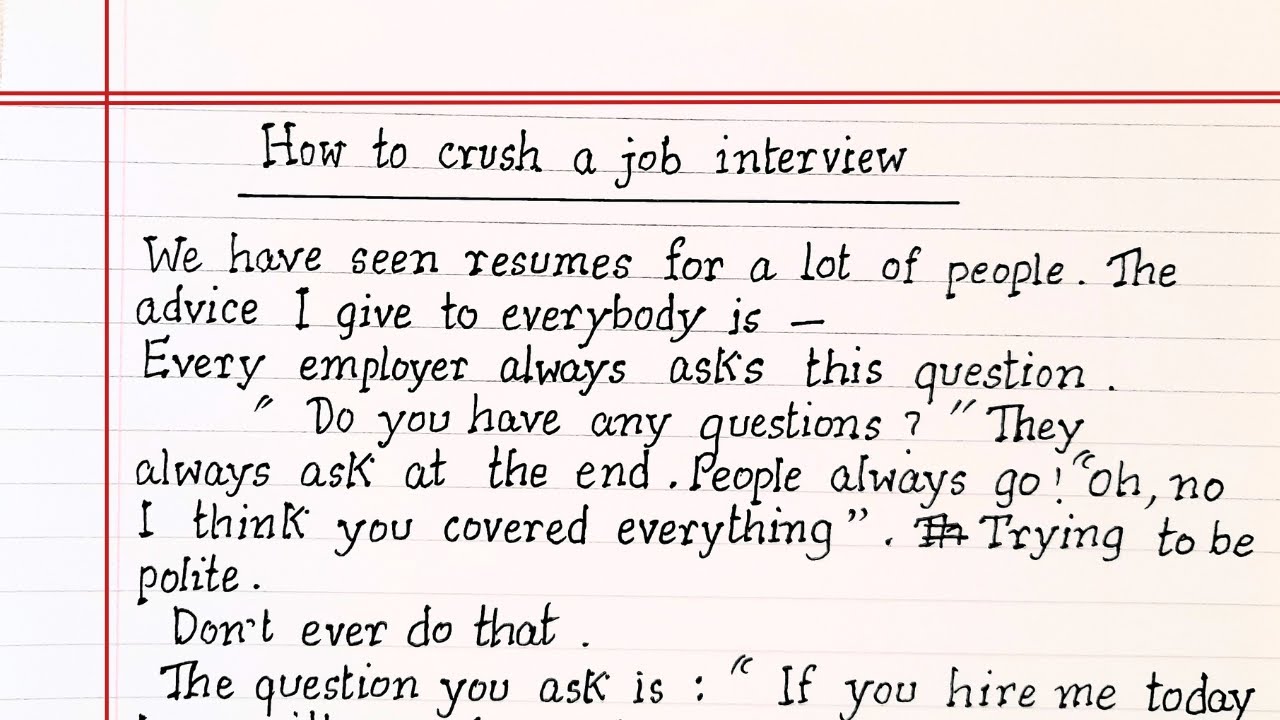 How to crush a job interview
We have seen resumes for a lot of people. The
advice I give to everybody is –
Every employer always asks this question.
" Do you have any questions? " They
always ask at the end. People always go! "Oh, no
I think you covered everything". Trying to be
polite.
Don't ever do that.
The question you ask is : " If you hire me today